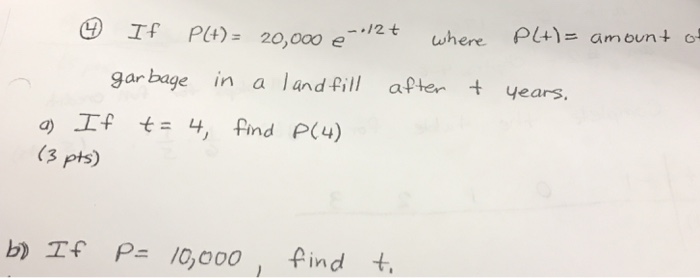 ④ If P(t) = 20,000 e^-.12t where P(t) = amount of
garbage in a landfill after t years.
a) If t = 4, find P(4)
(3 pts)
b) If P = 10,000, find t.